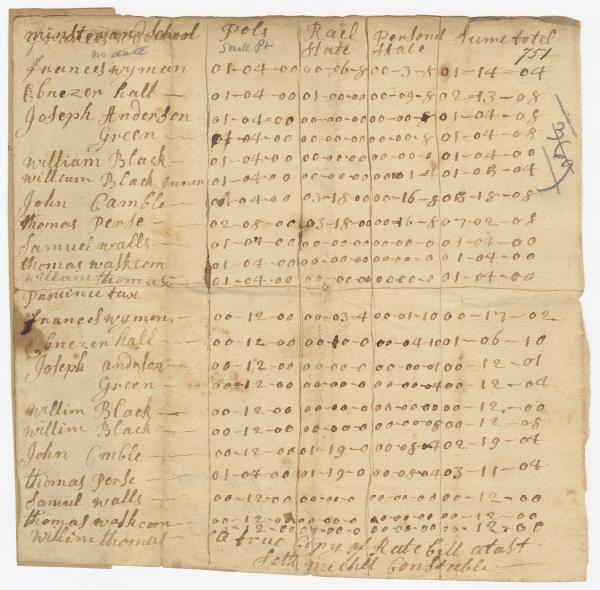 minster and School Pols Rael State Personal State Sume totel
no date 751
frances wyman 01-04-00 00-06-8 00-3-8 01-14-04
Ebnezer hall 01-04-00 01-00-0 00-09-8 02-13-08
Joseph Anderson 01-04-00 00-00-0 01-04-08
Green 01-04-00 00-00-0 01-04-08
william Black 01-04-00 00-00-0 00-00-0 01-04-00
willcum Black Juner 01-04-00 00-00-0 01-05-04
John Camble 01-04-00 03-18-0 00-16-8 05-18-08
thomas Perse 02-08-00 03-18-0 00-16-8 07-02-08
Samuel walls 01-04-00 00-00-0 00-00-0 01-04-00
thomas waskcom 01-04-00 00-00-0 00-00-0 01-04-00
william thomas 01-04-00 00-00-0 00-00-0 01-04-00
Prouince tax
frances wymen 00-12-00 00-03-4 00-01-10 00-17-02
Ebnezer hall 00-12-00 00-10-0 00-04-10 01-06-10
Joseph andrson 00-12-00 00-00-0 00-12-04
Green 00-12-00 00-00-0 00-00-04 00-12-04
willim Black 00-12-00 00-00-0 00-00-00 00-12-00
willim Black 00-12-00 00-00-0 00-00-08 00-12-08
John Comble 00-12-00 01-19-0 00-08-4 02-19-04
thomas Perse 01-04-00 01-19-0 00-08-4 03-11-04
Samuel walls 00-12-00 00-00-0 00-00-0 00-12-00
thomas waskcom 00-12-00 00-00-0 00-00-00 00-12-00
willim thomas 00-12-00 00-00-0 00-00-00 00-12-00
A true Copy of Rate Bill atast
Seth michll Constable